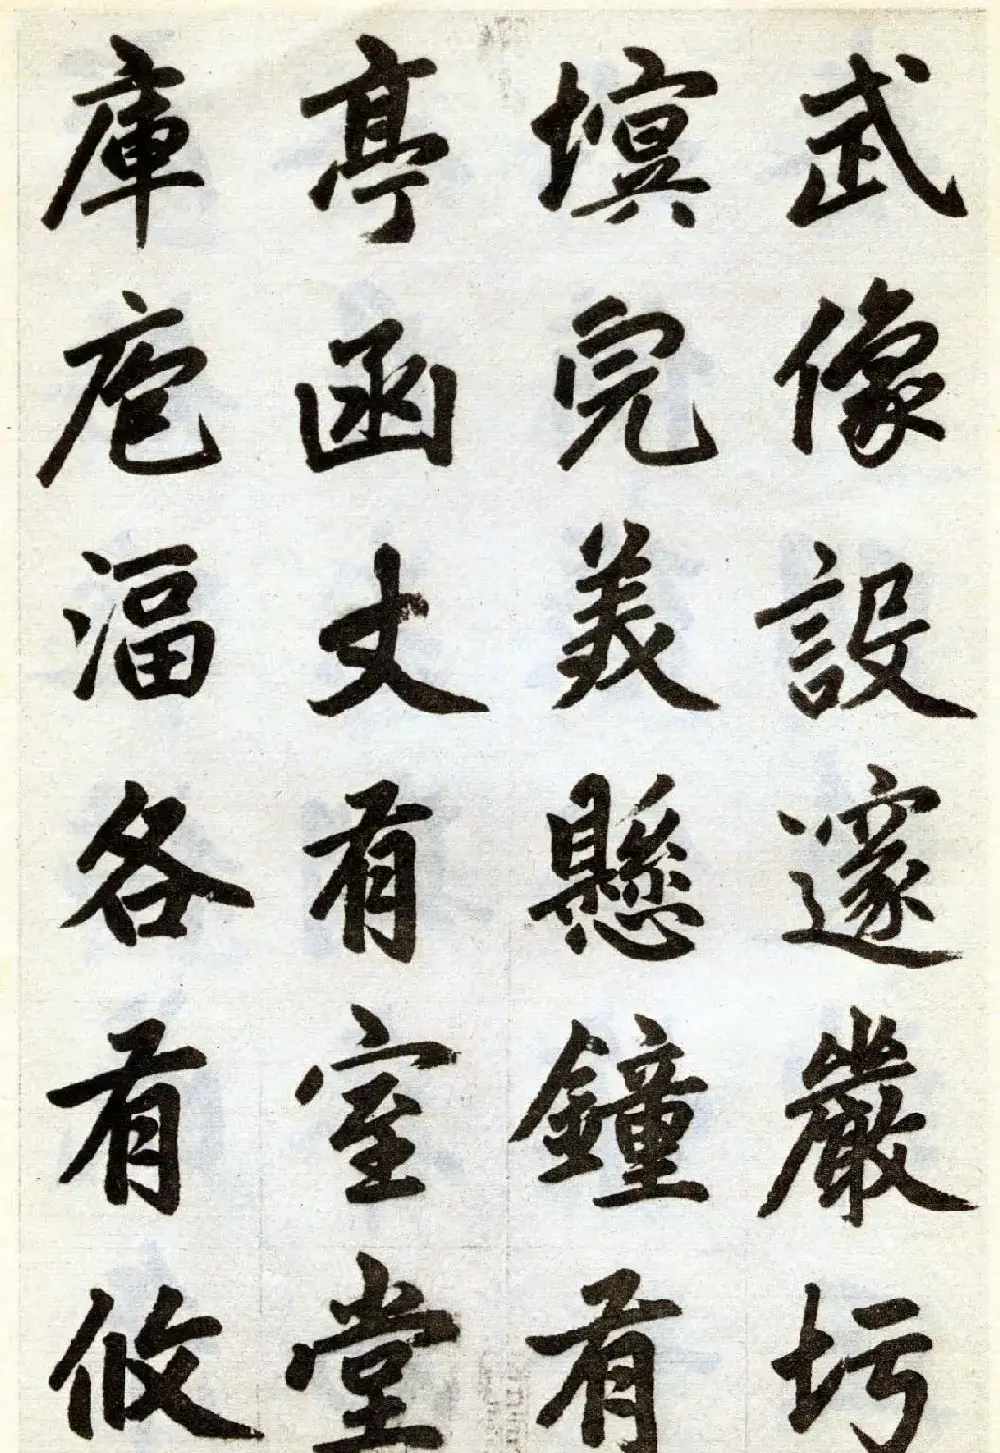 武像設邃嚴圬
塓完美懸鐘有
亭函丈有室堂
庫庖湢各有攸